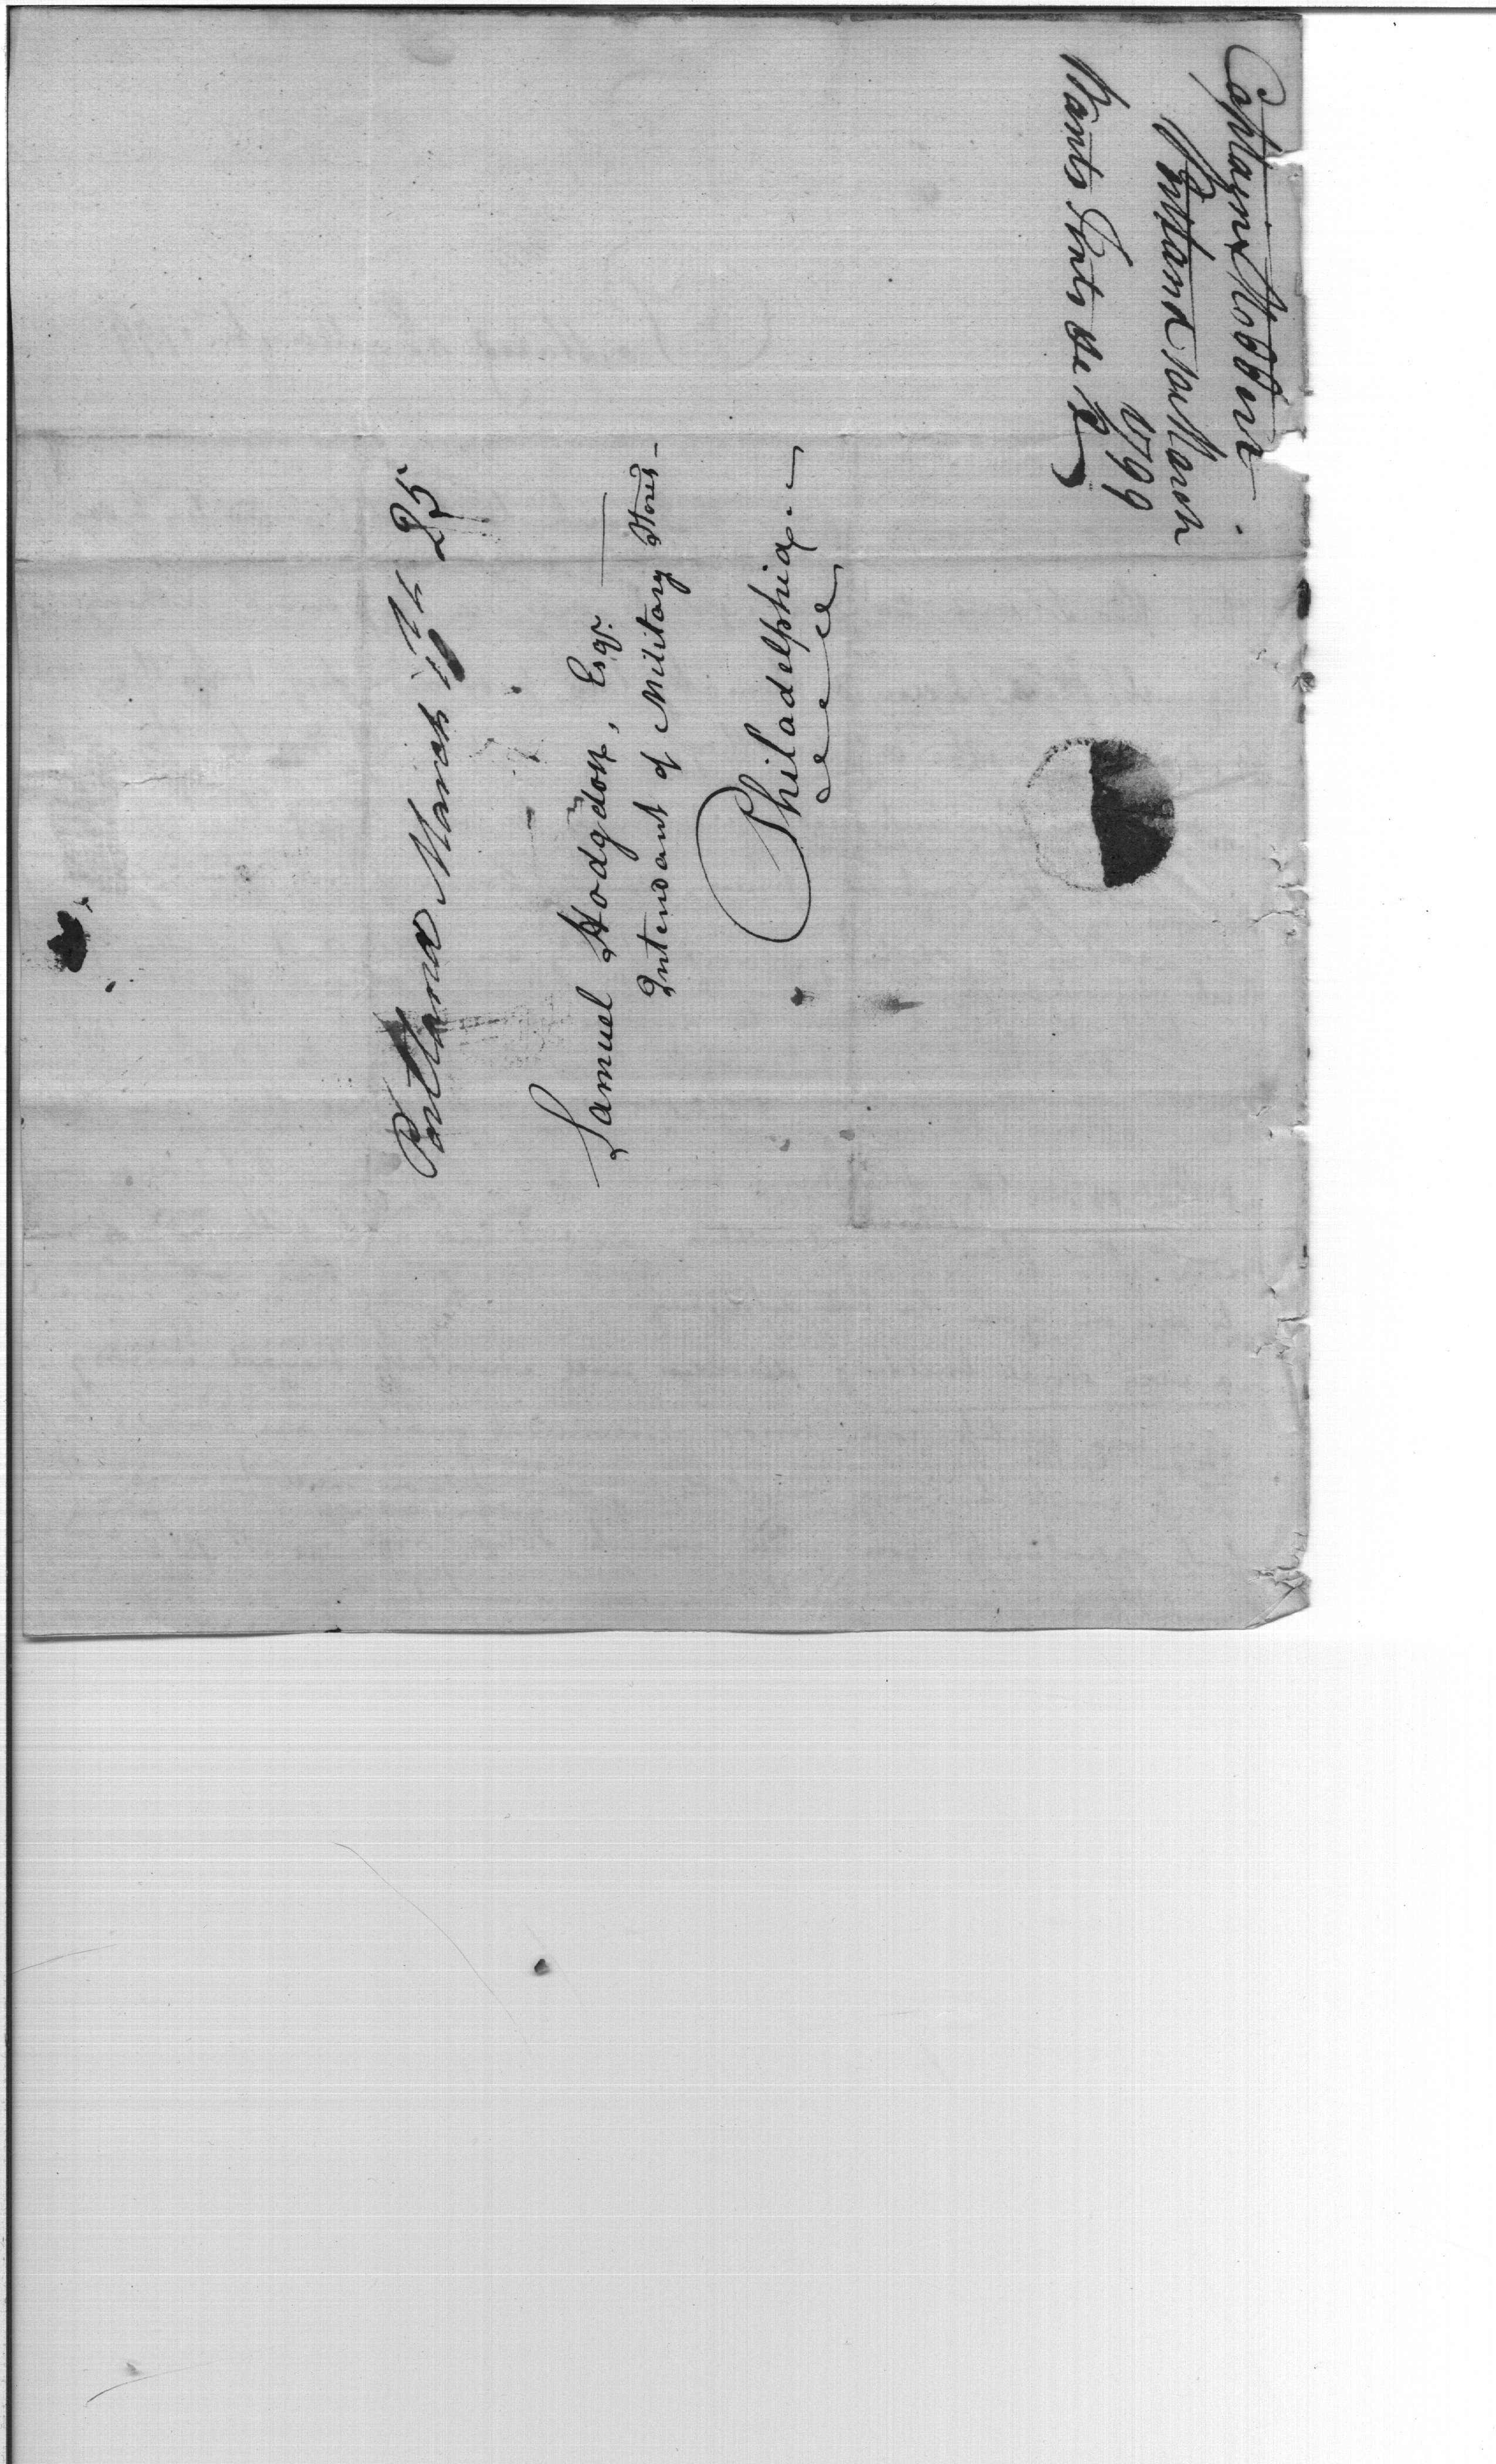 Portland March 25
Samuel Hodgdon, Esqr.
Intendant of Military Stores –
Philadelphia
Captain
Portland March
1799
Wants Tents &c &c